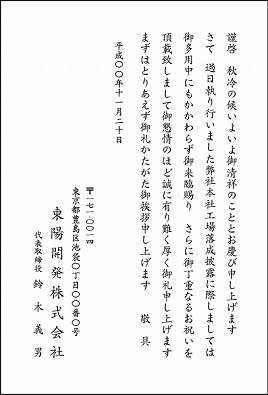 謹啓　秋冷の候いよいよ御清祥のこととお慶び申し上げます
さて　過日執り行いました弊社本社工場落成披露に際しましては
御多用中にもかかわらず御来臨賜り　さらに御丁重なるお祝いを
頂戴致しまして御懇情のほど誠に有り難く厚く御礼申し上げます
まずはとりあえず御礼かたがた御挨拶申し上げます　敬具
平成〇〇年十一月二十日
〒一七一-〇〇一四
東京都豊島区池袋〇丁目〇〇番〇号
東陽開発株式会社
代表取締役　鈴木義男